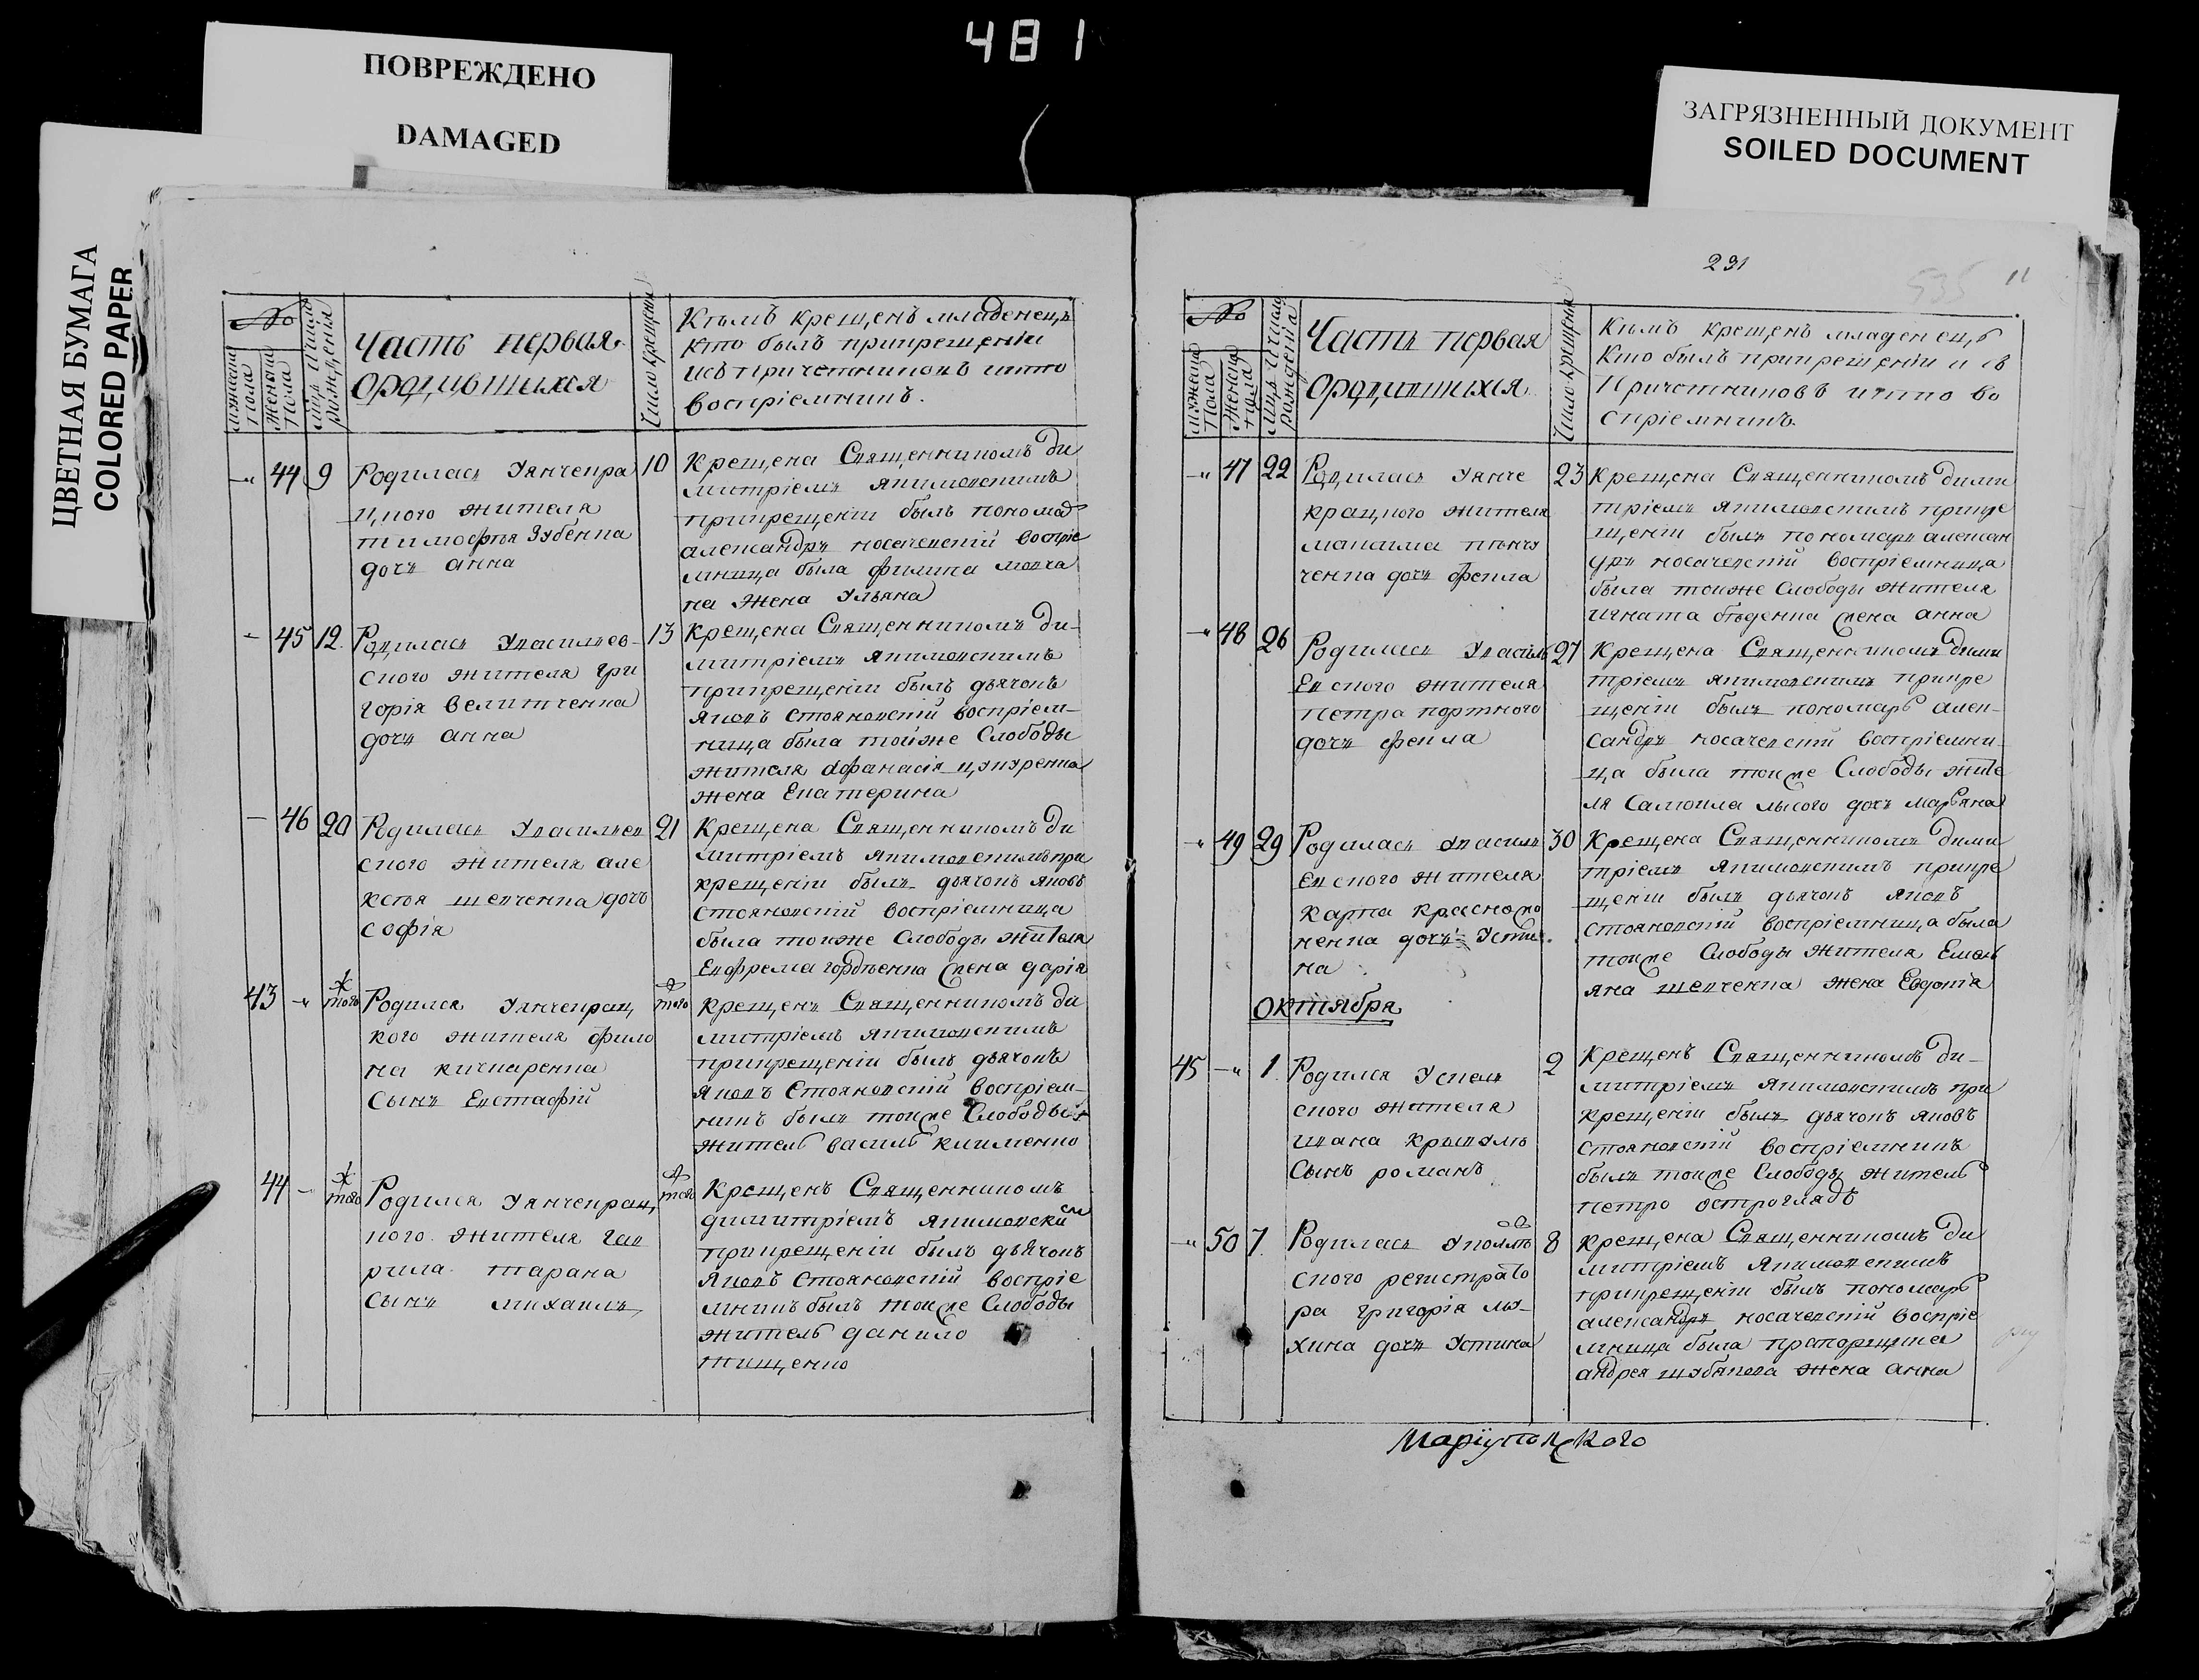 481
ПОВРЕЖДЕНО
DAMAGED
ЦВЕТНАЯ БУМАГА
COLORED PAPER
ЗАГРЯЗНЕННЫЙ ДОКУМЕНТ
SOILED DOCUMENT
№
мужеска пола
женска пола
рожденія
Часть первая
ородившихся
Число крещенія
Кѣмъ крещенъ младенецъ
кто былъ прикрещеніи
исъ причетниковъ икто
воспріемникъ.
44 9 Родилась Уянчекра
цкого жителя
тимофѣя Зубенка
дочь анна
10 Крещена Священникомъ Ди
митріемъ якимовскимъ
прикрещеніи былъ пономар
александръ носачевскій воспріе
мница была филипа
на жена Ульяна
45 12 Родилась Увасильев-
ского жителя гри
горія величченка
дочь анна
13 Крещена Священникомъ Ди-
митріемъ якимовскимъ
прикрещеніи былъ дьячокъ
яковъ стояновскій воспріем-
ница была тойже Слободы
жителя афанасія
жена Екатерина
46 20 Родилась Увасильев
ского жителя але
ксѣя шевченка дочь
софія
21 Крещена Священникомъ Ди
митріемъ якимовскимъ при
крещеніи былъ дьячокъ яковъ
стояновскій воспріемница
была тойже Слободы жителя
Евфрема гордѣенка жена дарія
43 того Родился Уянчекрац
кого жителя фили
на кичкаренка
Сынъ Евстафій
того Крещенъ Священникомъ Ди
митріемъ якимовскимъ
прикрещеніи былъ дьячокъ
яковъ Стояновскій воспріем-
никъ былъ тойже Слободы
житель василь клименко
44 того Родился Уянчекрац
кого жителя гав
рила тарана
Сынъ михаилъ
того Крещенъ Священникомъ
димитріемъ якимовски
мъ
прикрещеніи былъ дьячокъ
яковъ Стояновскій воспріе
мникъ былъ тойже Слободы
житель данило
тищенко
231
535 11
№
мужеска пола
женска пола
рожденія
Часть первая
ородившихся
Число крещенія
Кѣмъ крещенъ младенецъ
кто былъ прикрещеніи исъ
Причетниковъ икто во
спріемникъ.
47 22 Родилась Уянче
крацкого жителя
максима
дочь фекла
23 Крещена Священникомъ дими
тріемъ якимовскимъ прикре
щеніи былъ пономарь алексан
дръ носачевскій воспріемница
была тойже Слободы жителя
игната бѣденка жена анна
48 26 Родилась Увасиль
Евского жителя
петра портного
дочь фекла
27 Крещена Священникомъ дими
тріемъ якимовскимъ прикре
щеніи былъ пономарь алек-
сандръ носачевскій воспріемни-
ца была тойже Слободы жите
ля самойла лысого дочь марьяна
49 29 Родилась Увасиль
Евского жителя
карпа красноко
ненка дочь Усти
на
30 Крещена Священникомъ дими
тріемъ якимовскимъ прикре
щеніи былъ дьячокъ яковъ
стояновскій воспріемница была
тойже Слободы жителя Емель
яна шевченка жена Евдокія
октября
45 1 Родился
ского жителя
ивана
Сынъ романъ
2 Крещенъ Священникомъ Ди-
митріемъ якимовскимъ при
крещеніи былъ дьячокъ яковъ
стояновскій воспріемникъ
былъ тойже Слободы житель
петро остроглядъ
50 7 Родилась
ского регистрато
ра григорія лы-
хина дочь Устина
8 крещена Священникомъ Ди
митріемъ Якимовскимъ
прикрещеніи былъ пономарь
александръ носачевскій воспріе
мница была прапорщика
андрея жена анна
Маріупольского